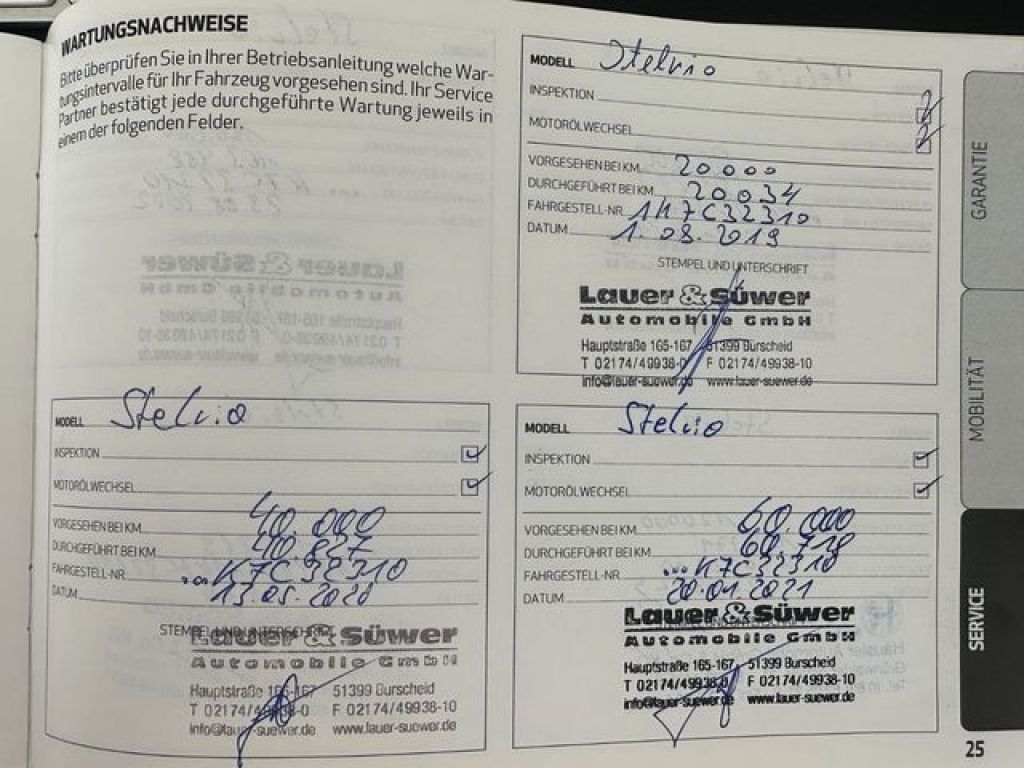 WARTUNGSNACHWEISE
Bitte überprüfen Sie in Ihrer Betriebsanleitung welche War-
tungsintervalle für Ihr Fahrzeug vorgesehen sind. Ihr Service
Partner bestätigt jede durchgeführte Wartung jeweils in
einem der folgenden Felder.
MODELL Stelvio
INSPEKTION
MOTORÖLWECHSEL
VORGESEHEN BEI KM 20000
DURCHGEFÜHRT BEI KM 20034
FAHRGESTELL-NR. 1K7C32310
DATUM 1.08.2019
STEMPEL UND UNTERSCHRIFT
Lauer & Süwer
Automobile GmbH
Hauptstraße 165-167 51399 Burscheid
T 02174/49938-0 F 02174/49938-10
info@lauer-suewer.de www.lauer-suewer.de
MODELL Stelvio
INSPEKTION
MOTORÖLWECHSEL
VORGESEHEN BEI KM 40.000
DURCHGEFÜHRT BEI KM 40.827
FAHRGESTELL-NR. ...K7C32310
DATUM 13.05.2020
STEMPEL UND UNTERSCHRIFT
Lauer & Süwer
Automobile GmbH
Hauptstraße 165-167 51399 Burscheid
T 02174/49938-0 F 02174/49938-10
info@lauer-suewer.de www.lauer-suewer.de
MODELL Stelvio
INSPEKTION
MOTORÖLWECHSEL
VORGESEHEN BEI KM 60.000
DURCHGEFÜHRT BEI KM 60.719
FAHRGESTELL-NR. ...K7C32310
DATUM 20.01.2021
Lauer & Süwer
Automobile GmbH
Hauptstraße 165-167 51399 Burscheid
T 02174/49938-0 F 02174/49938-10
info@lauer-suewer.de www.lauer-suewer.de
GARANTIE
MOBILITÄT
SERVICE
25